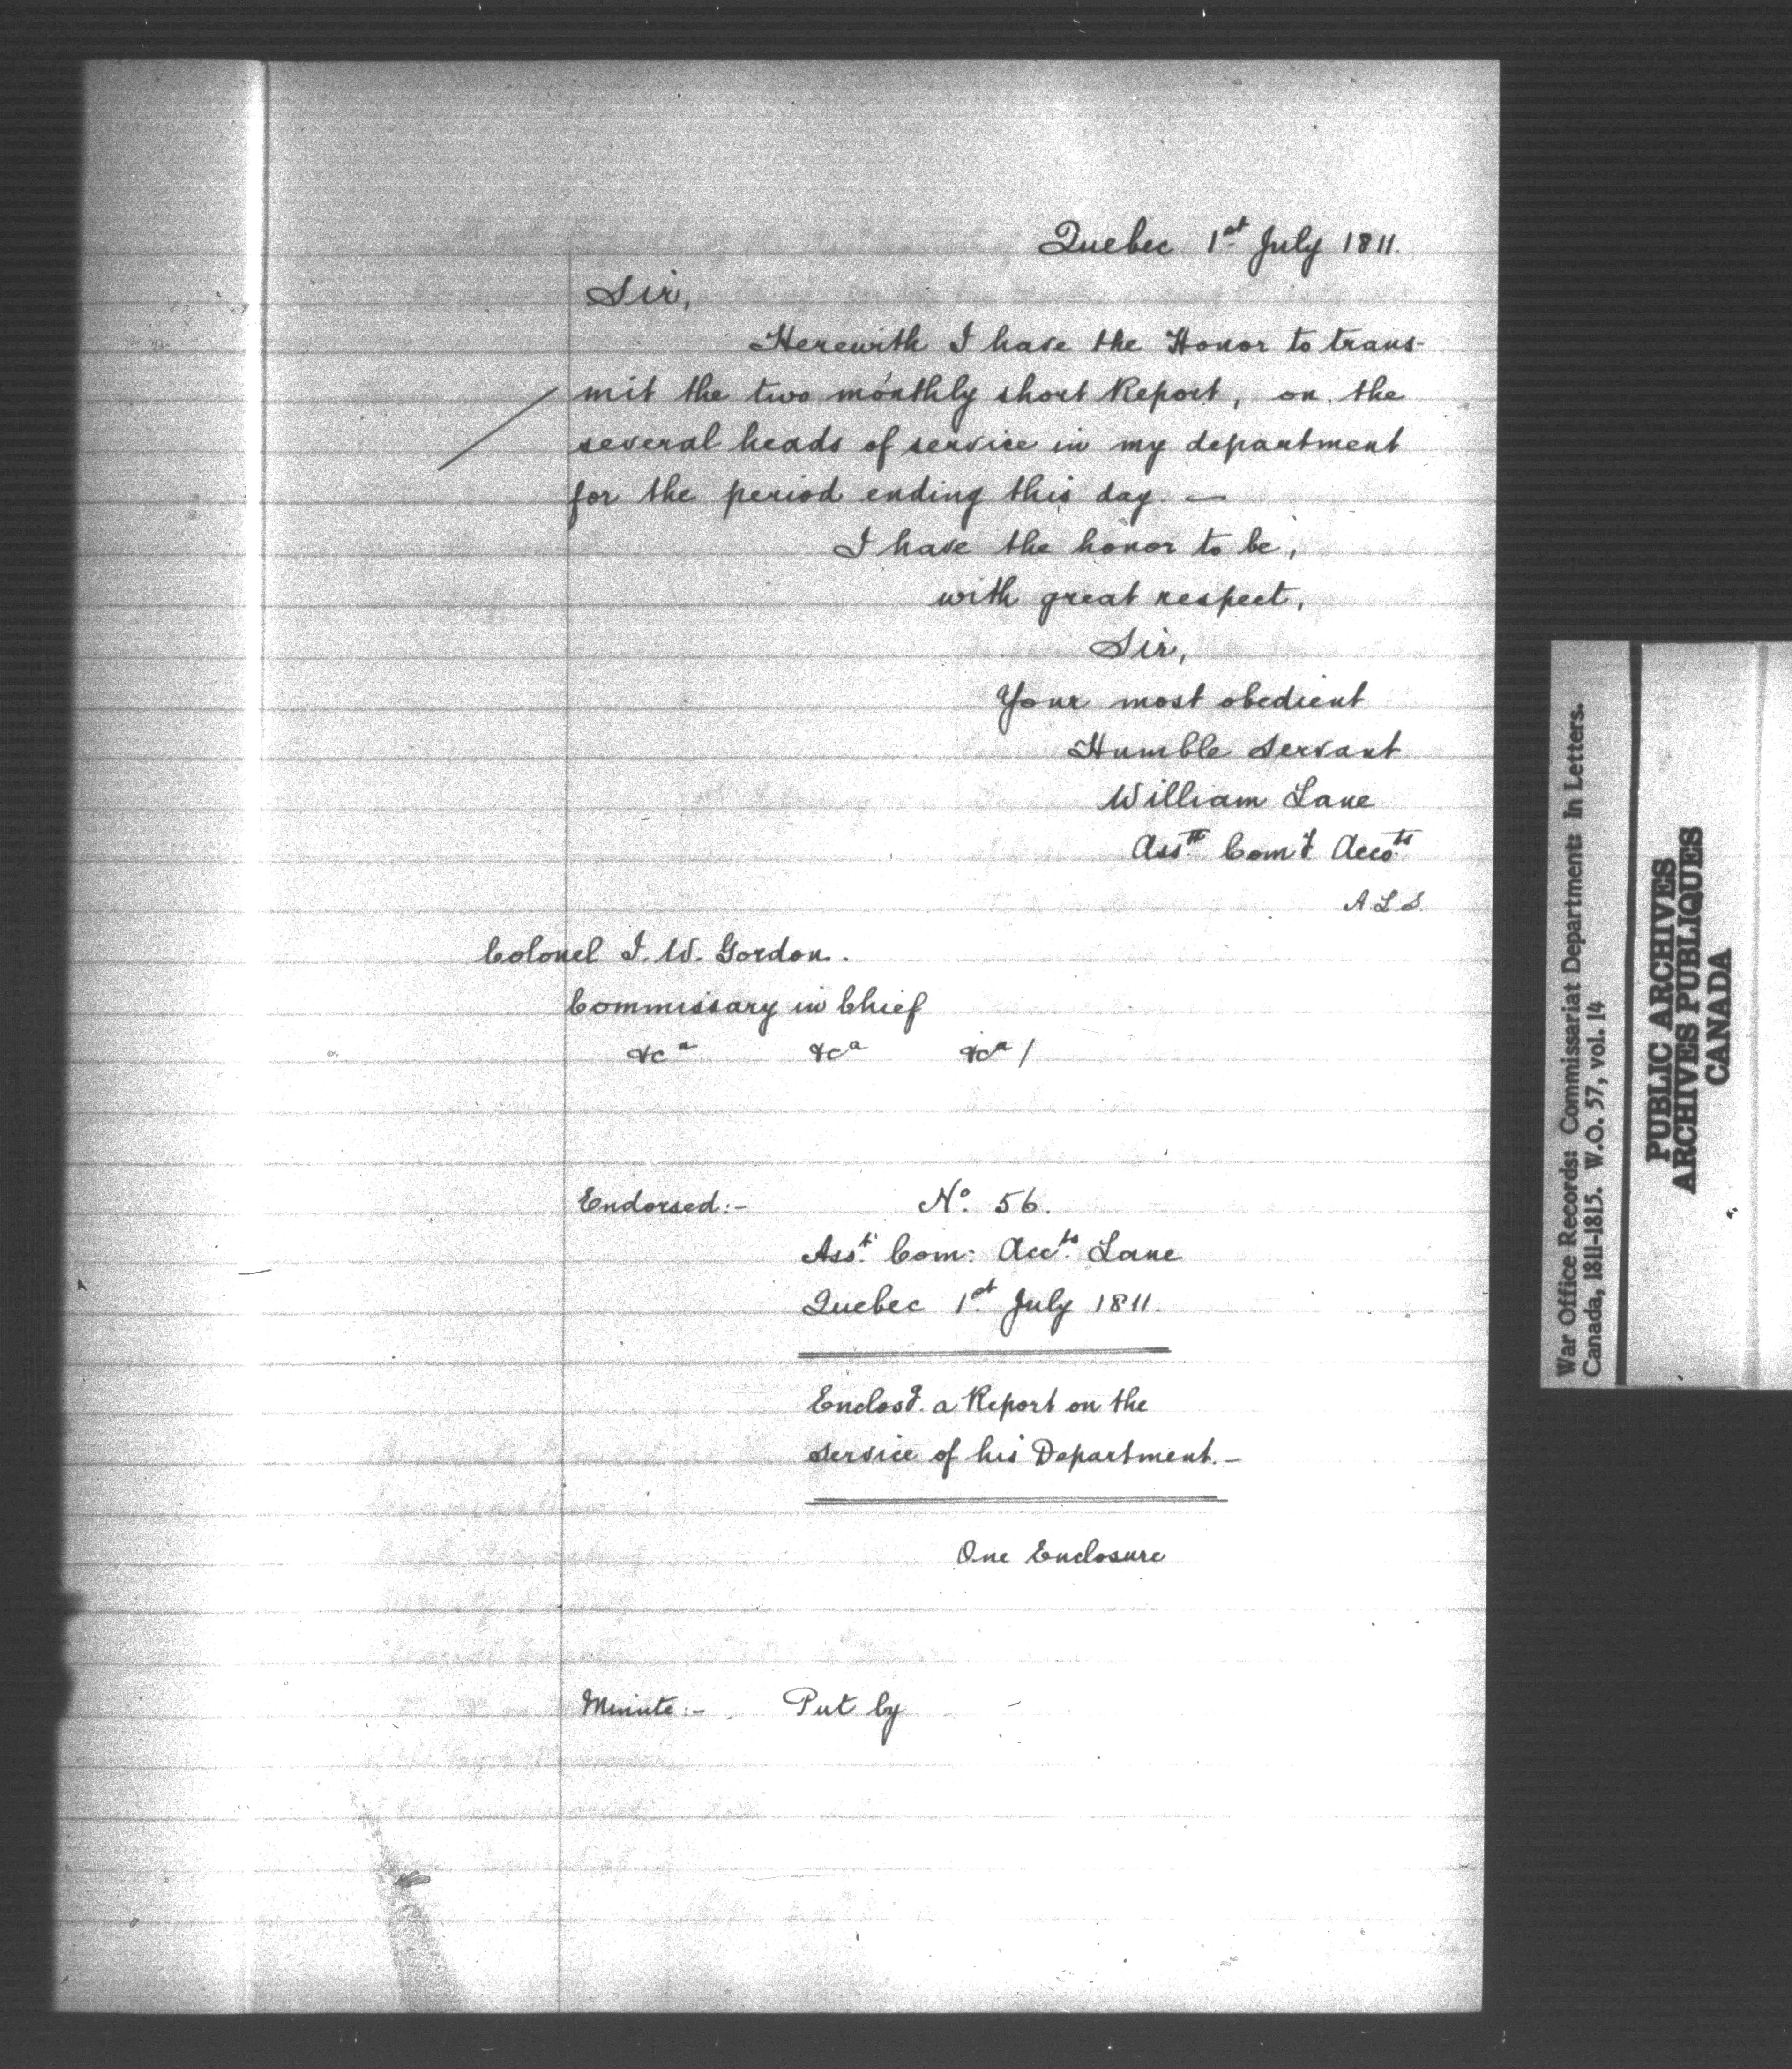 Quebec 1st July 1811.
Sir,
Herewith I have the Honor to trans-
mit the two monthly short Report, on the
several heads of service in my department
for the period ending this day. —
I have the honor to be,
with great respect,
Sir,
Your most obedient
Humble Servant
William Lane
Asstt Comy Accots
A L S.
Colonel J. W. Gordon.
Commissary in Chief
&ca &ca &ca /
Endorsed:- No. 56.
Asst. Com: Accts Lane
Quebec 1st July 1811.
Enclosg. a Report on the
Service of his Department. -
One Enclosure
Minute:- Put by
War Office Records: Commissariat Department: In Letters.
Canada, 1811-1815. W.O. 57, vol. 14
PUBLIC ARCHIVES
ARCHIVES PUBLIQUES
CANADA